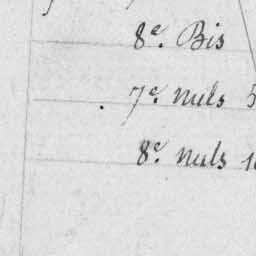 8e. Bis
7e. nuls 5
8e. nuls